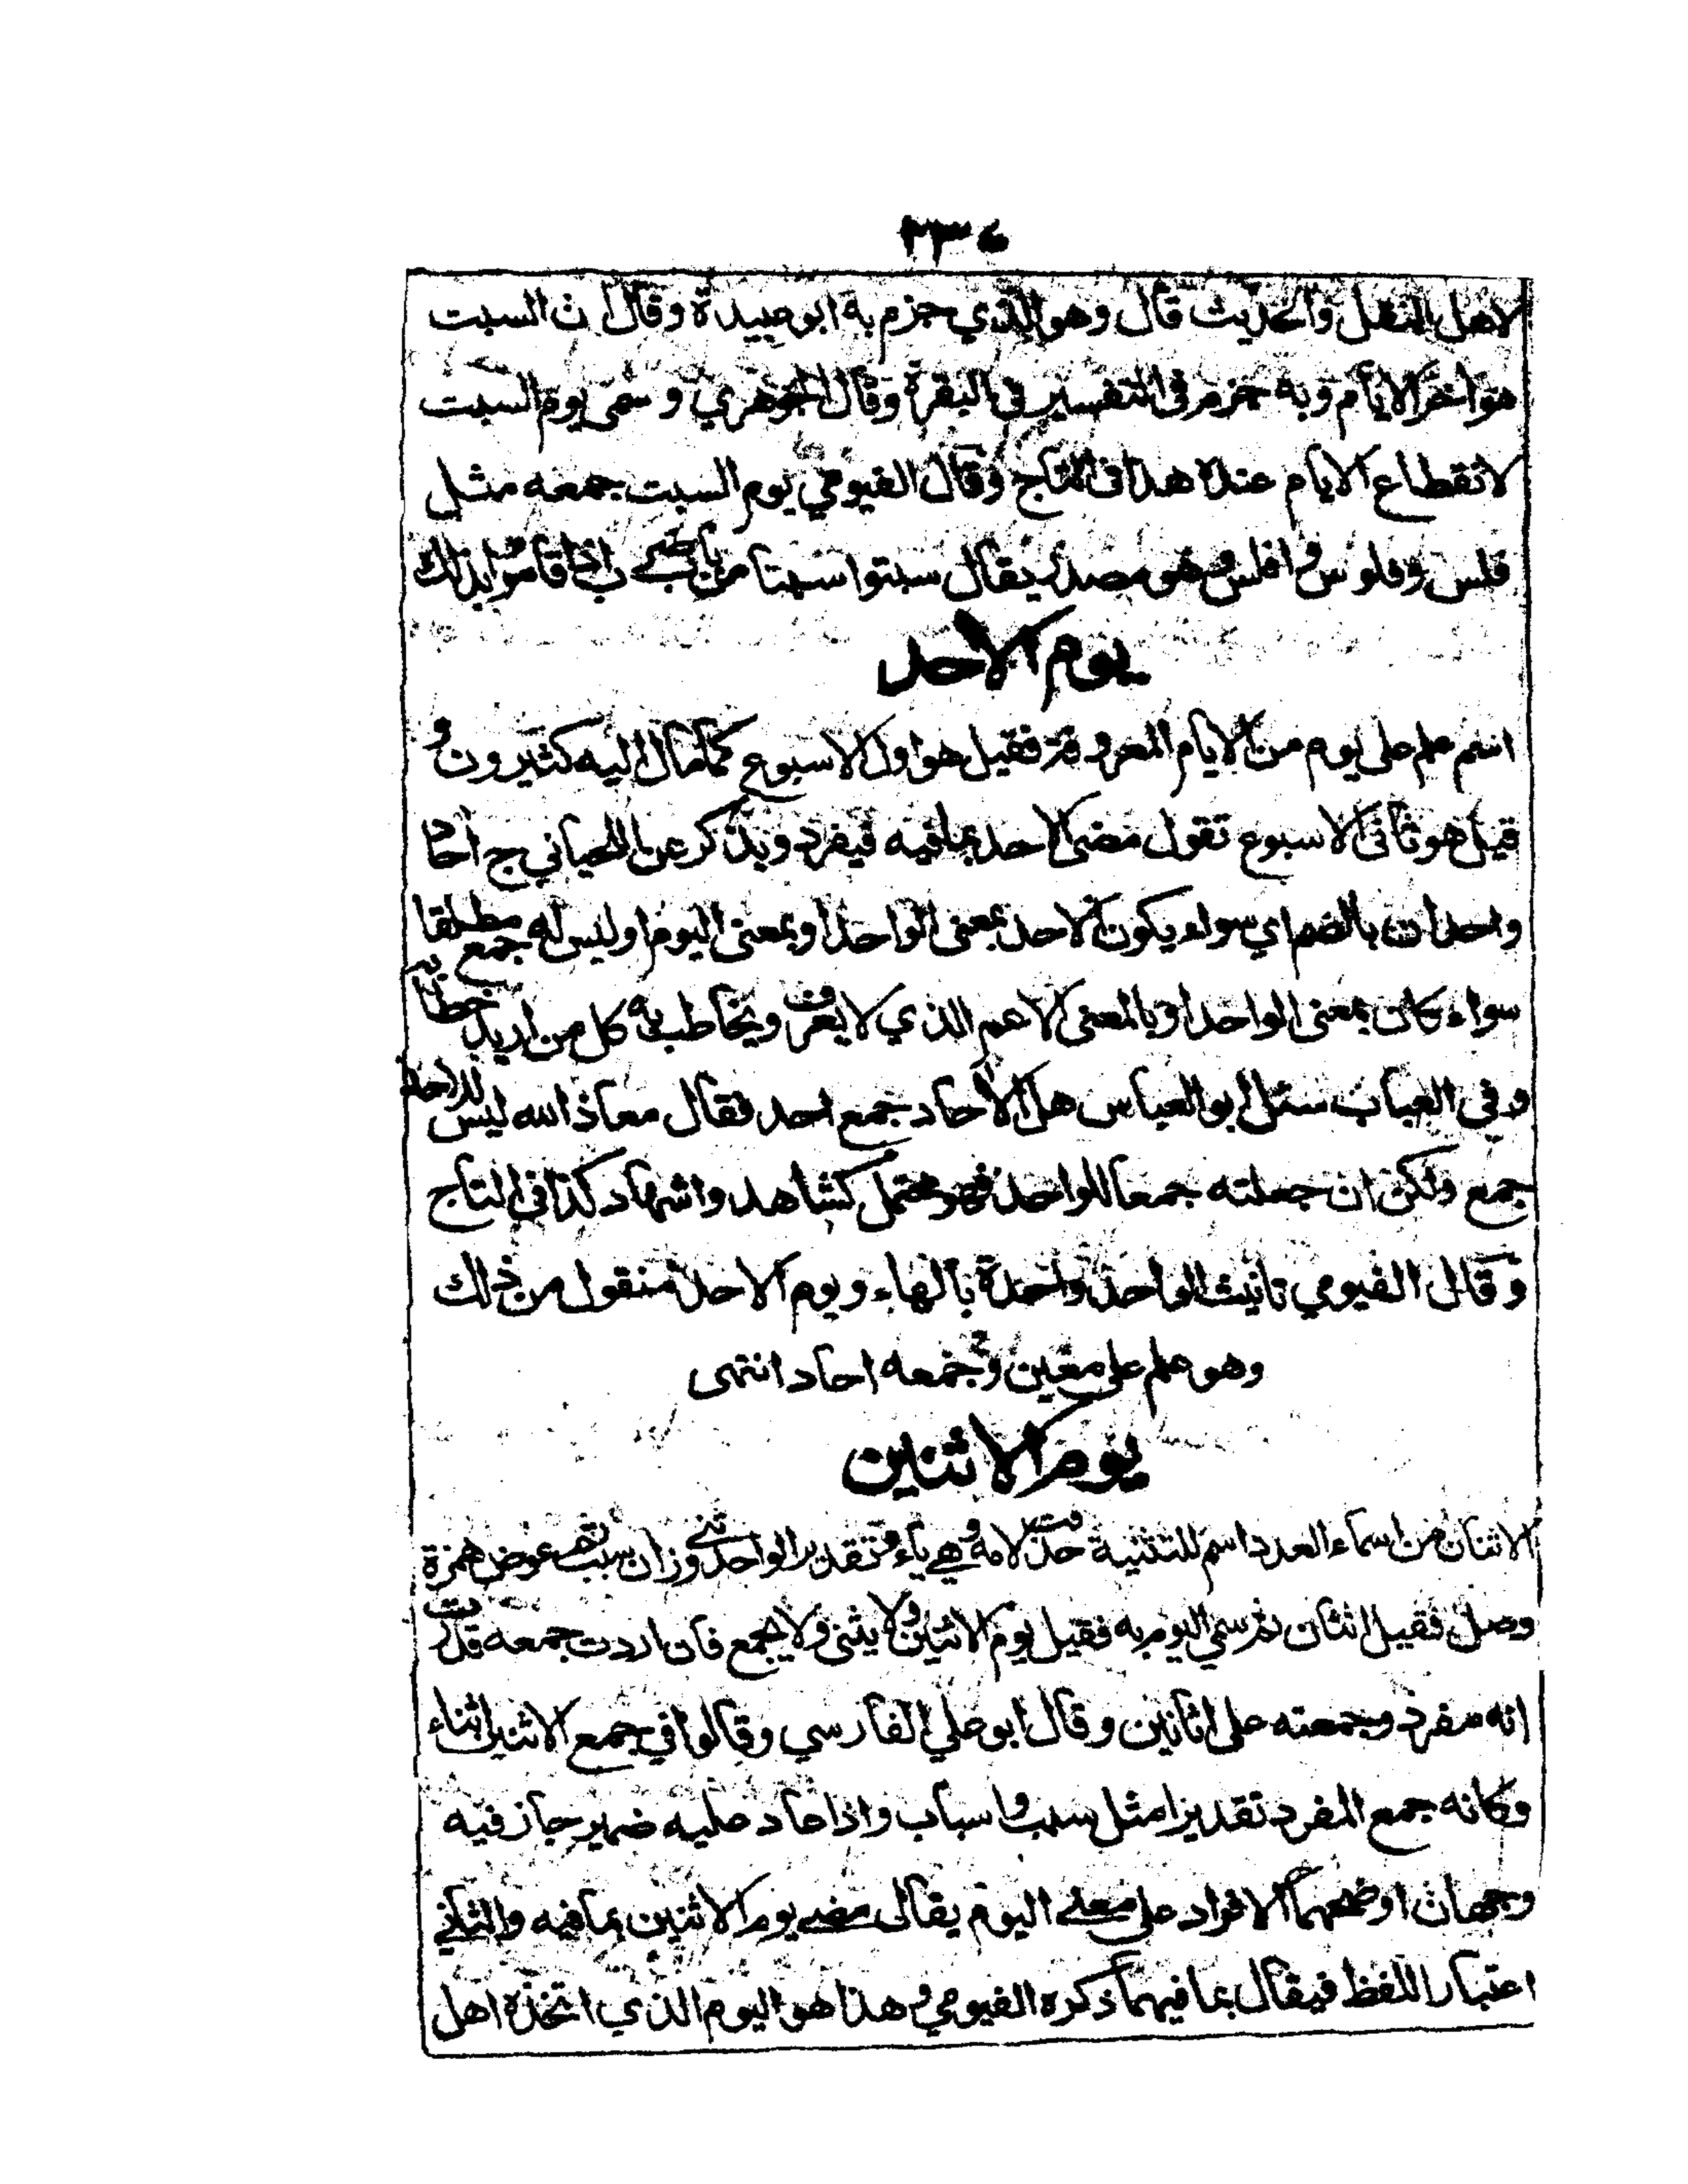 ٢٣٤
لاهل بالنقل والحديث قال وهو الذي جزم به ابو عبيدة وقال ان السبت
هو اخر الايام وبه جزم في التفسير في البقرة وقال الجوهري و سمى يوم السبت
لانقطاع الايام عنده هذا في التاج وقال الفيومي يوم السبت جمعه مثل
فلس وفلوس وافلس وهو مصدر يقال سبتوا سبتا من باب اذا قاموا بذلك
يوم الاحد
اسم علم على يوم من الايام المعروفة فقيل هو اول الاسبوع كما مال اليه كثيرون و
قيل هو ثاني الاسبوع تقول مضى الاحد بما فيه فيفرد ويذكر عن اللحياني ج احاد
واحدان بالضم اي سواء يكون الاحد بمعنى الواحد او بمعنى اليوم او ليس له جمع مطلقا
سواء كان بمعنى الواحد او بالمعنى الاعم الذي لا يعرف ويخاطب به كل من اريد خطابه
وفي العباب سئل ابو العباس هل الاحاد جمع احد فقال معاذ الله ليس للاحد
جمع ولكن ان جعلته جمعا للواحد فهو محتمل كشاهد واشهاد كذا في التاج
وقال الفيومي تانيث الواحد واحدة بالهاء ويوم الاحد منقول من ذلك
وهو علم على معين وجمعه احاد انتهى
يوم الاثنين
الاثنان من اسماء العدد اسم للتثنية حذفت لامه وهي ياء وتقدير الواحد ثني وزان سبب ثم عوض همزة
وصل فقيل اثنان ثم سمي اليوم به فقيل يوم الاثنين ولا يثنى ولا يجمع فان اردت جمعه قدرت
انه مفرد وجمعته على اثانين وقال ابو علي الفارسي وقالوا في جمع الاثنين اثناء
وكانه جمع المفرد تقديرا مثل سبب واسباب واذا عاد عليه ضمير جاز فيه
وجهان اوضحهما الافراد على معنى اليوم يقال مضى يوم الاثنين بما فيه والثاني
اعتبار اللفظ فيقال بما فيهما ذكره الفيومي وهذا هو اليوم الذي اتخذه اهل